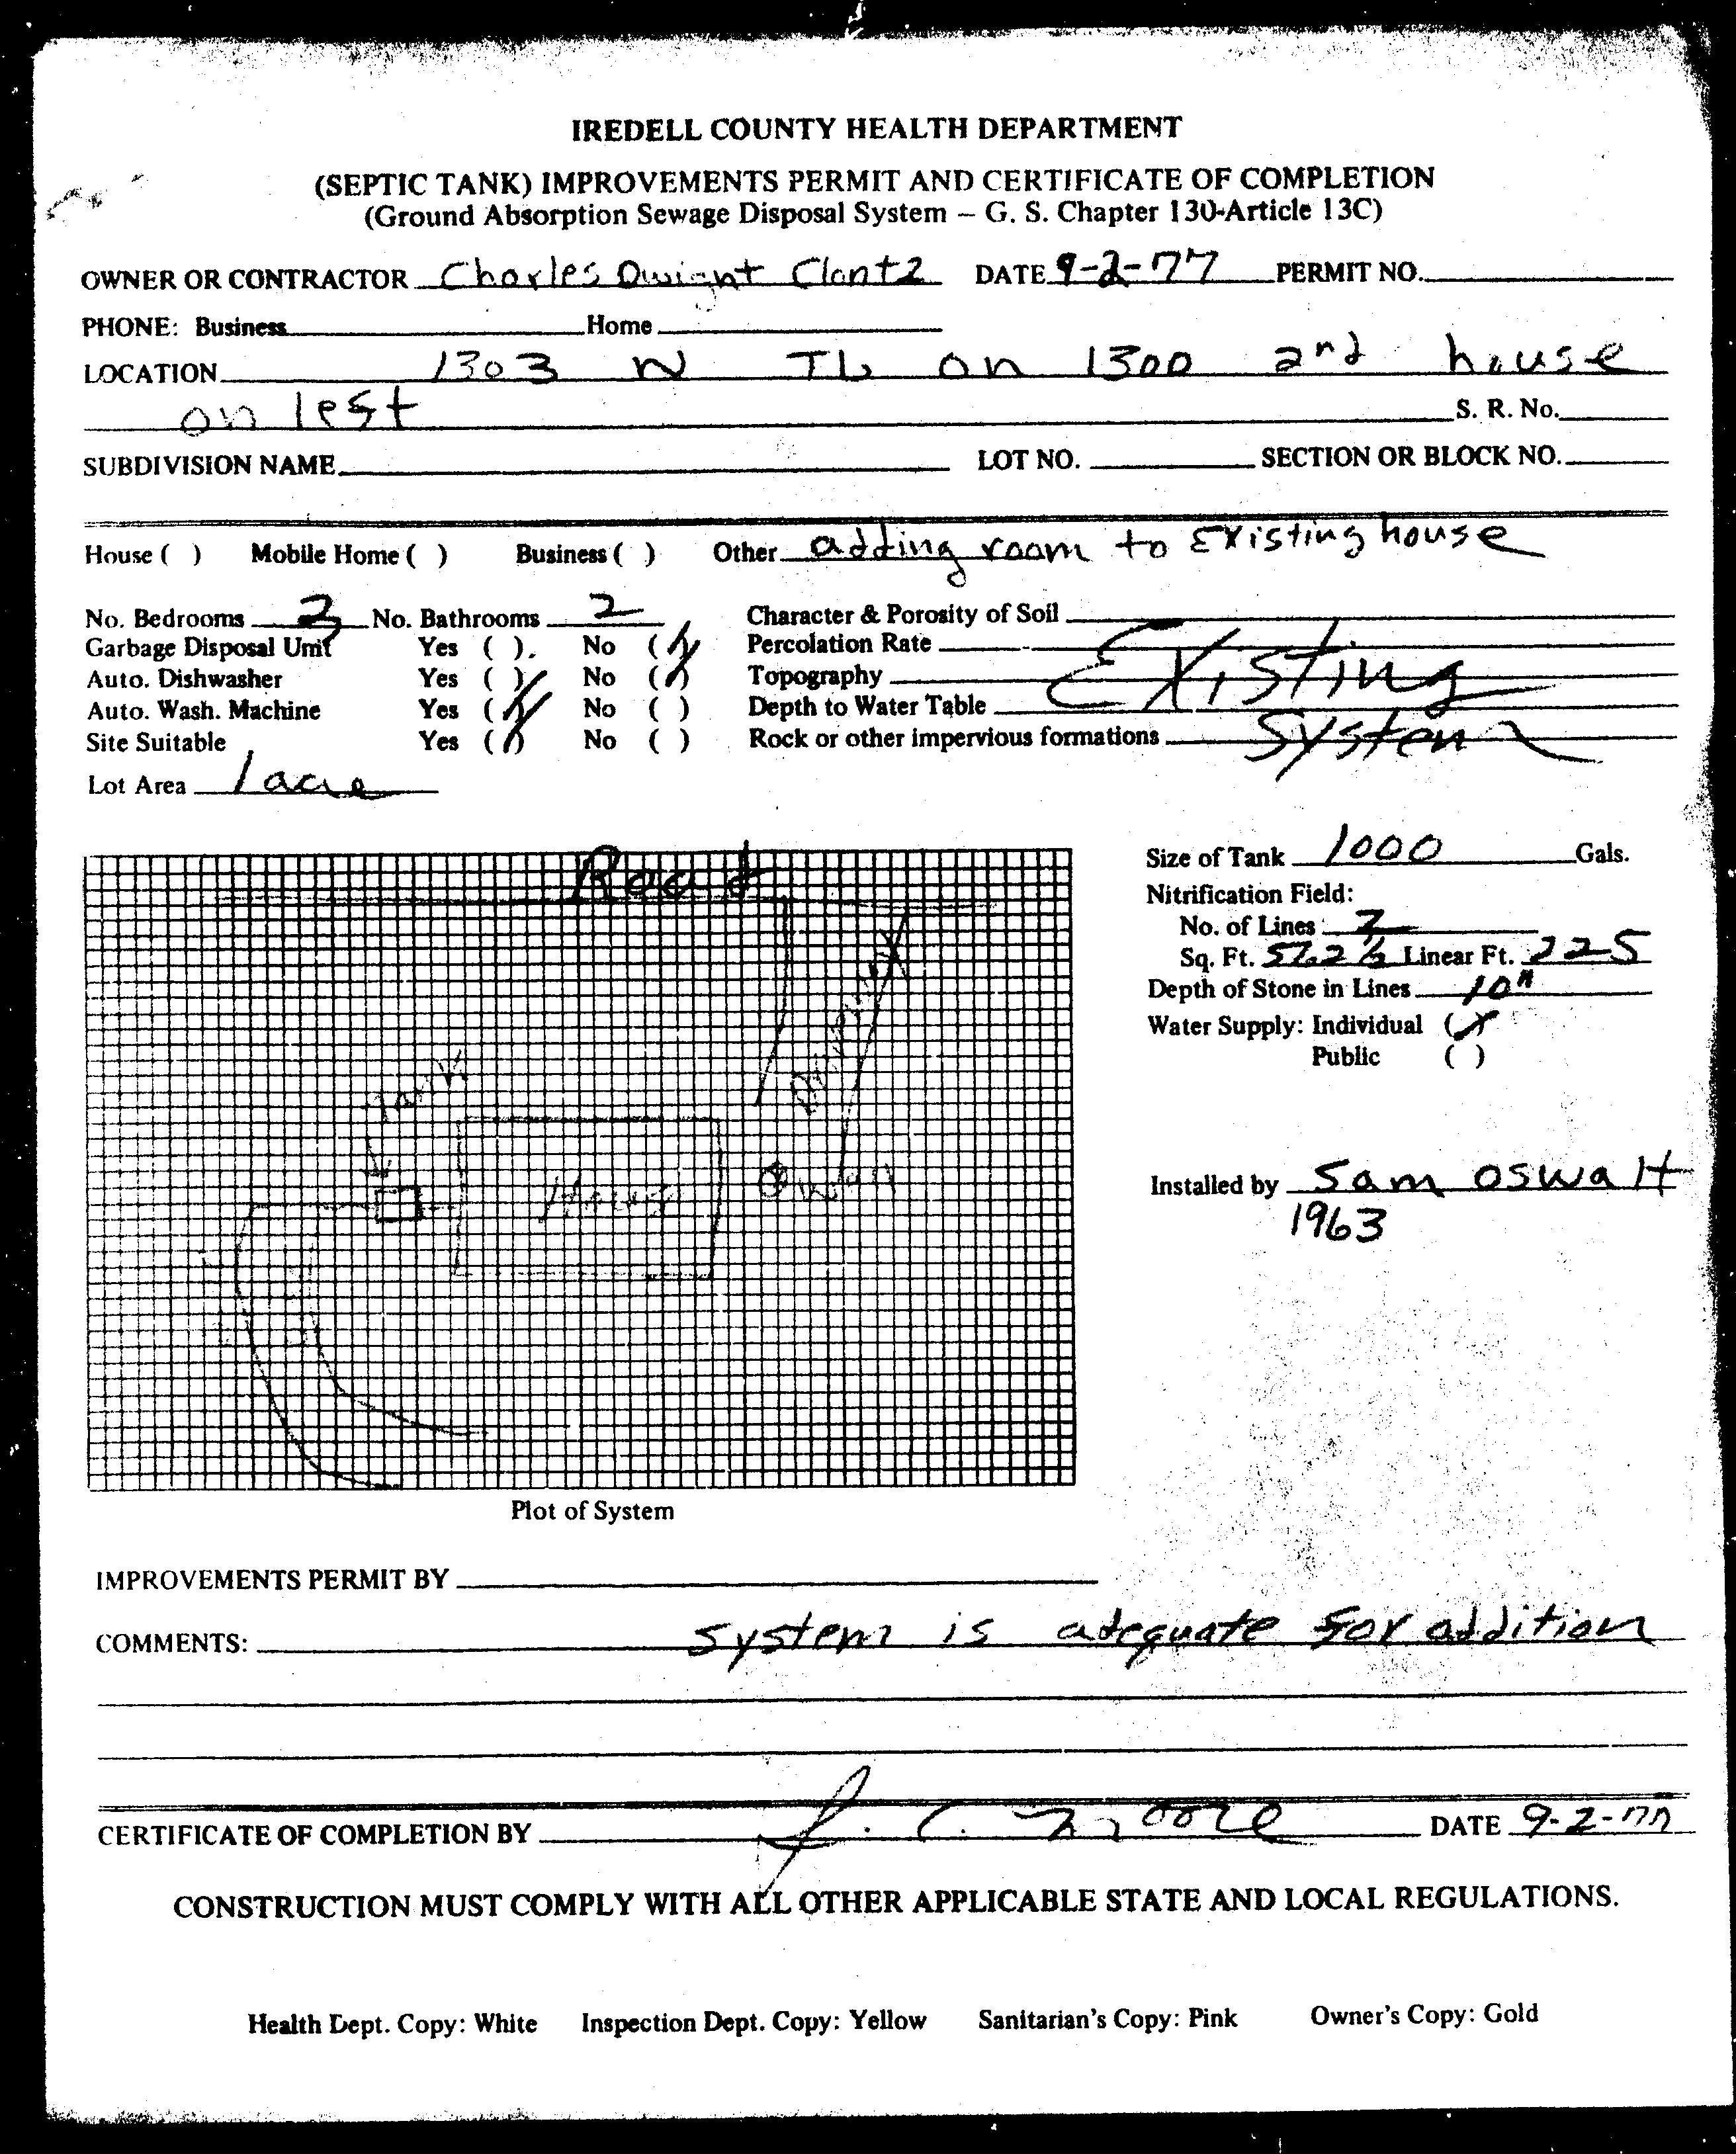 IREDELL COUNTY HEALTH DEPARTMENT
(SEPTIC TANK) IMPROVEMENTS PERMIT AND CERTIFICATE OF COMPLETION
(Ground Absorption Sewage Disposal System – G. S. Chapter 130-Article 13C)
OWNER OR CONTRACTOR Charles Dwight Clontz DATE 9-2-77 PERMIT NO.
PHONE: Business Home
LOCATION 1303 N TL on 1300 2nd house
on left S. R. No.
SUBDIVISION NAME LOT NO. SECTION OR BLOCK NO.
House ( ) Mobile Home ( ) Business ( ) Other adding room to Existing house
No. Bedrooms 3 No. Bathrooms 2 Character & Porosity of Soil
Garbage Disposal Unit Yes ( ). No (✓) Percolation Rate
Auto. Dishwasher Yes ( ) No (✓) Topography Existing
Auto. Wash. Machine Yes (✓) No ( ) Depth to Water Table
Site Suitable Yes (✓) No ( ) Rock or other impervious formations System
Lot Area 1 acre
Road
Driveway
Tank
House
Well
Plot of System
Size of Tank 1000 Gals.
Nitrification Field:
No. of Lines 2
Sq. Ft. 562 ½ Linear Ft. 225
Depth of Stone in Lines 10"
Water Supply: Individual (✓)
Public ( )
Installed by Sam Oswalt
1963
IMPROVEMENTS PERMIT BY
COMMENTS: System is adequate for addition
CERTIFICATE OF COMPLETION BY J. C. Moore DATE 9-2-77
CONSTRUCTION MUST COMPLY WITH ALL OTHER APPLICABLE STATE AND LOCAL REGULATIONS.
Health Dept. Copy: White Inspection Dept. Copy: Yellow Sanitarian's Copy: Pink Owner's Copy: Gold